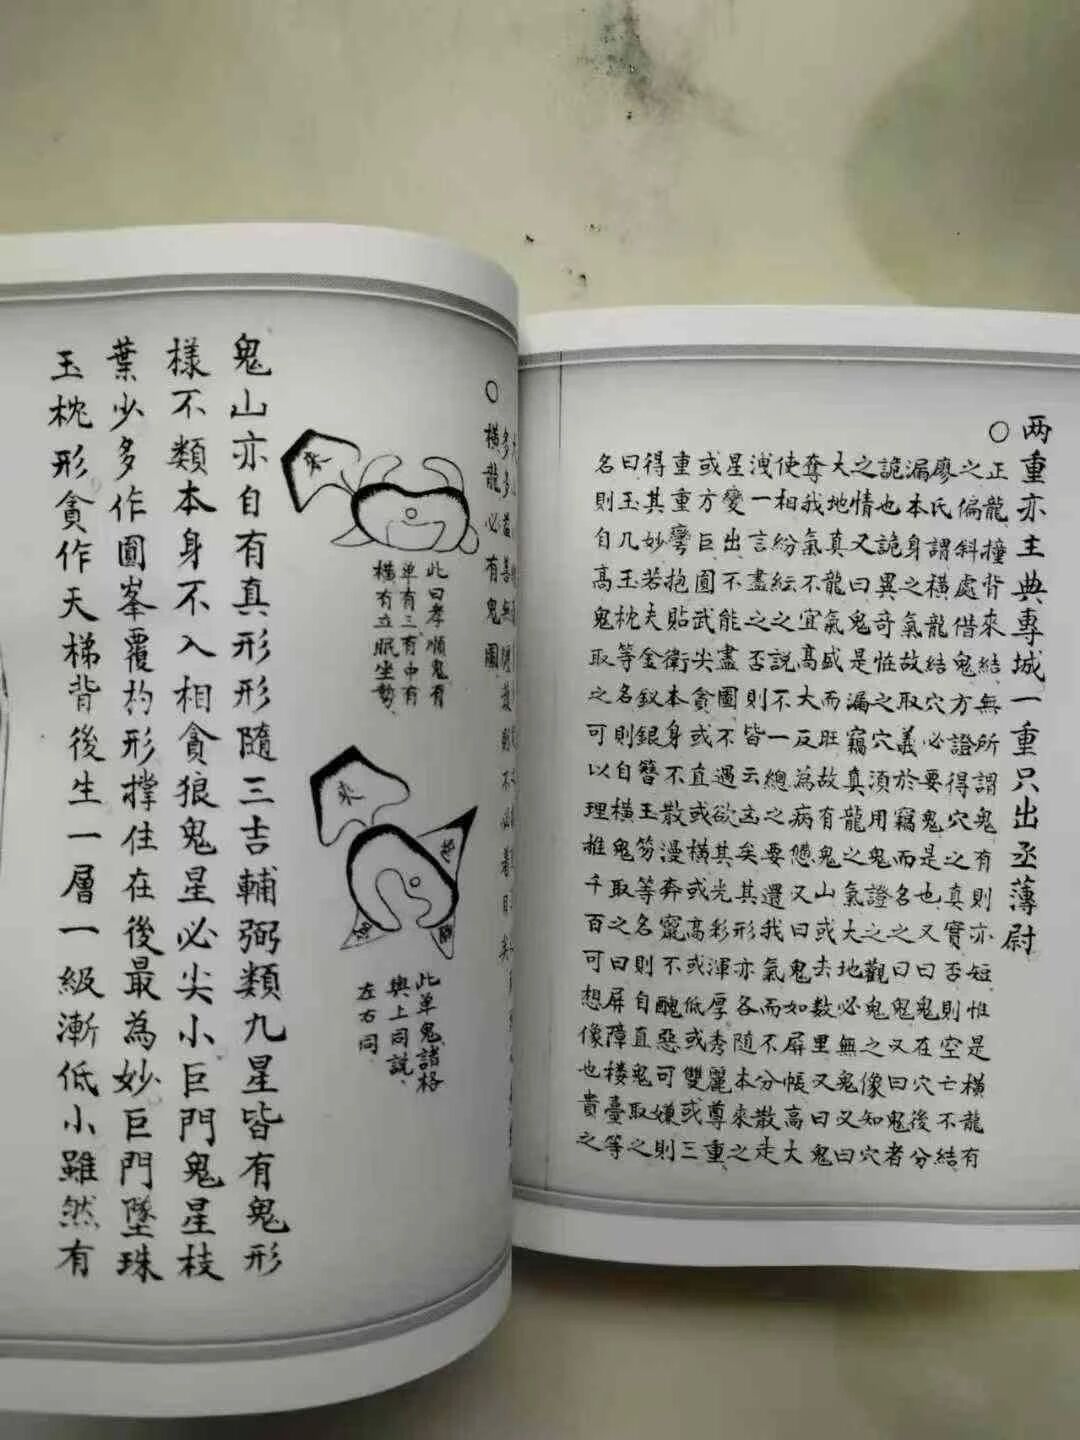 两重亦主典專城一重只出丞薄尉
○
正龍撞背來結無所謂鬼有則亦短惟是橫龍有
之偏斜處借鬼方證得穴之真實否則空亡不結
廖氏謂橫龍結穴必要鬼是也又曰鬼在穴後分
漏本身之氣故取義於竊而名之曰鬼又曰鬼者
詭也詭異奇怪之穴須用鬼證之觀鬼之像知穴
之情又曰鬼是漏竊真龍之氣大地必無鬼又曰
大地真龍氣盛而旺故有鬼山或去數里又曰鬼
奪我氣不宜高大反為病又曰鬼如屏帳高大
使相紛紜之說不一總之要還我氣而不分散走
洩一言盡之否則皆云凼矣其形亦各隨本來之
星變出不能盡圖不過欲其光彩渾厚秀麗尊重
或方巨圓武尖貪或直或橫或高或低或雙或三
重重彎抱貼衛本身不散漫奔竄不醜惡可嫌則
得其妙若夫金釵銀簪玉笏等名則自直鬼取之
曰玉几玉枕等名則自橫鬼取之曰屏障楼臺等
名則自高鬼取之可以理推千百可想像也貴之
多多益善無
○橫龍必有鬼圖
來
此曰孝順鬼有
单有三有中有
橫有立眠坐勢
來
鬼
鬼
鬼
此单鬼諸格
與上同說
左右同
鬼山亦自有真形形隨三吉輔弼類九星皆有鬼形
樣不類本身不入相貪狼鬼星必尖小巨門鬼星枝
葉少多作圓峯覆杓形撑住在後最為妙巨門墜珠
玉枕形貪作天梯背後生一層一級漸低小雖然有